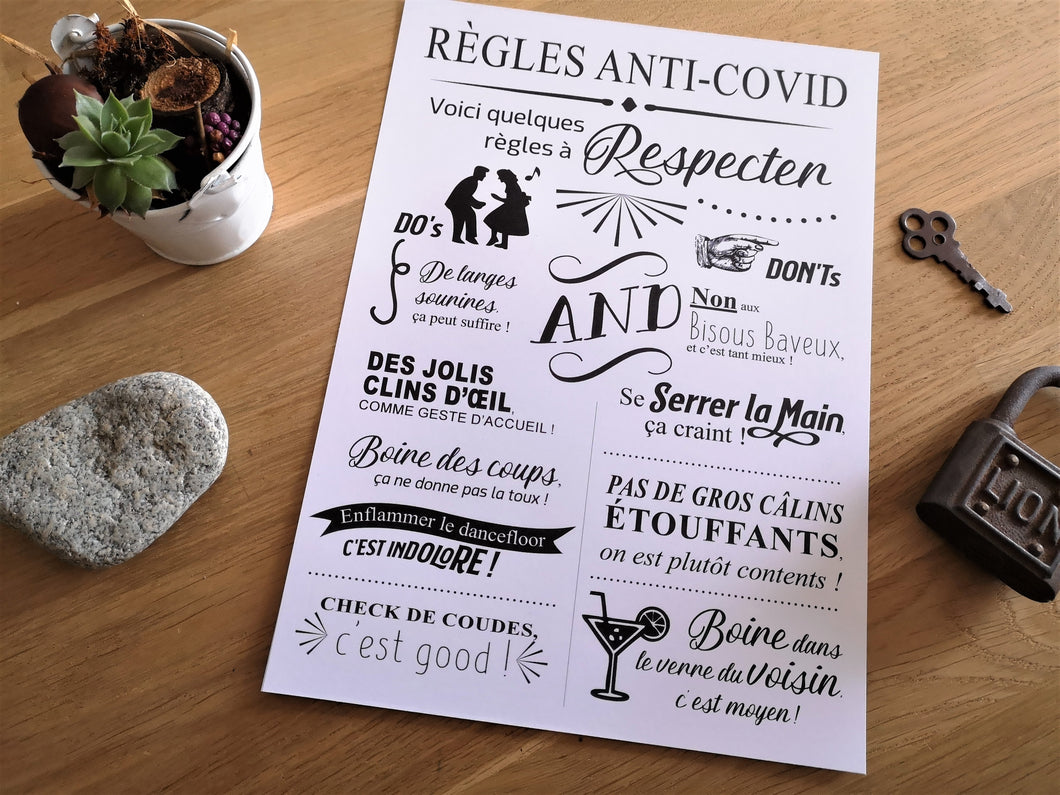 RÈGLES ANTI-COVID
Voici quelques
règles à Respecter
DO's
De larges
sourires,
ça peut suffire !
DES JOLIS
CLINS D'ŒIL,
COMME GESTE D'ACCUEIL !
Boire des coups,
ça ne donne pas la toux !
Enflammer le dancefloor
C'EST INDOLORE !
CHECK DE COUDES,
c'est good !
AND
DON'Ts
Non aux
Bisous Baveux,
et c'est tant mieux !
Se Serrer la Main,
ça craint !
PAS DE GROS CÂLINS
ÉTOUFFANTS,
on est plutôt contents !
Boire dans
le verre du Voisin,
c'est moyen !
LION